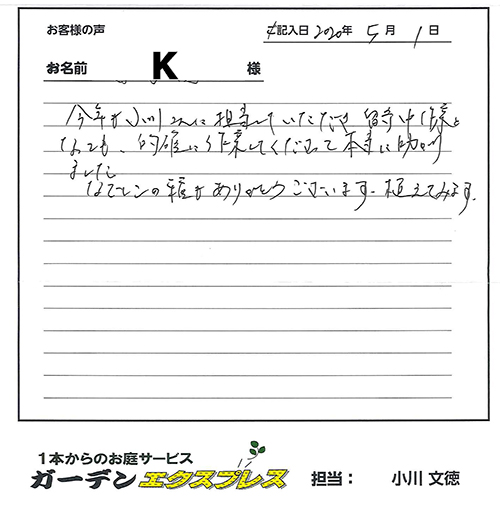 お客様の声
ご記入日 2020年 5月 1日
お名前 K 様
今年も小川さんに担当していただき 留守中作業と
なっても、的確に作業してくださって本当に助かり
ました
なでしこの種もありがとうございます。植えてみます。
1本からのお庭サービス
ガーデンエクスプレス 担当： 小川 文徳